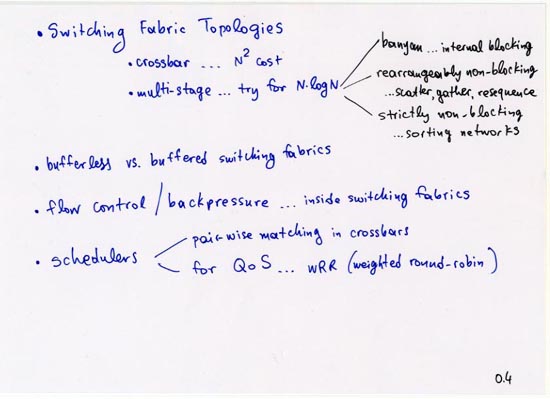 • Switching Fabric Topologies
• crossbar ... N² cost
• multi-stage ... try for N·logN
banyan ... internal blocking
rearrangeably non-blocking
... scatter, gather, resequence
strictly non-blocking
... sorting networks
• bufferless vs. buffered switching fabrics
• flow control / backpressure ... inside switching fabrics
• schedulers
pair-wise matching in crossbars
for QoS ... WRR (weighted round-robin)
0.4